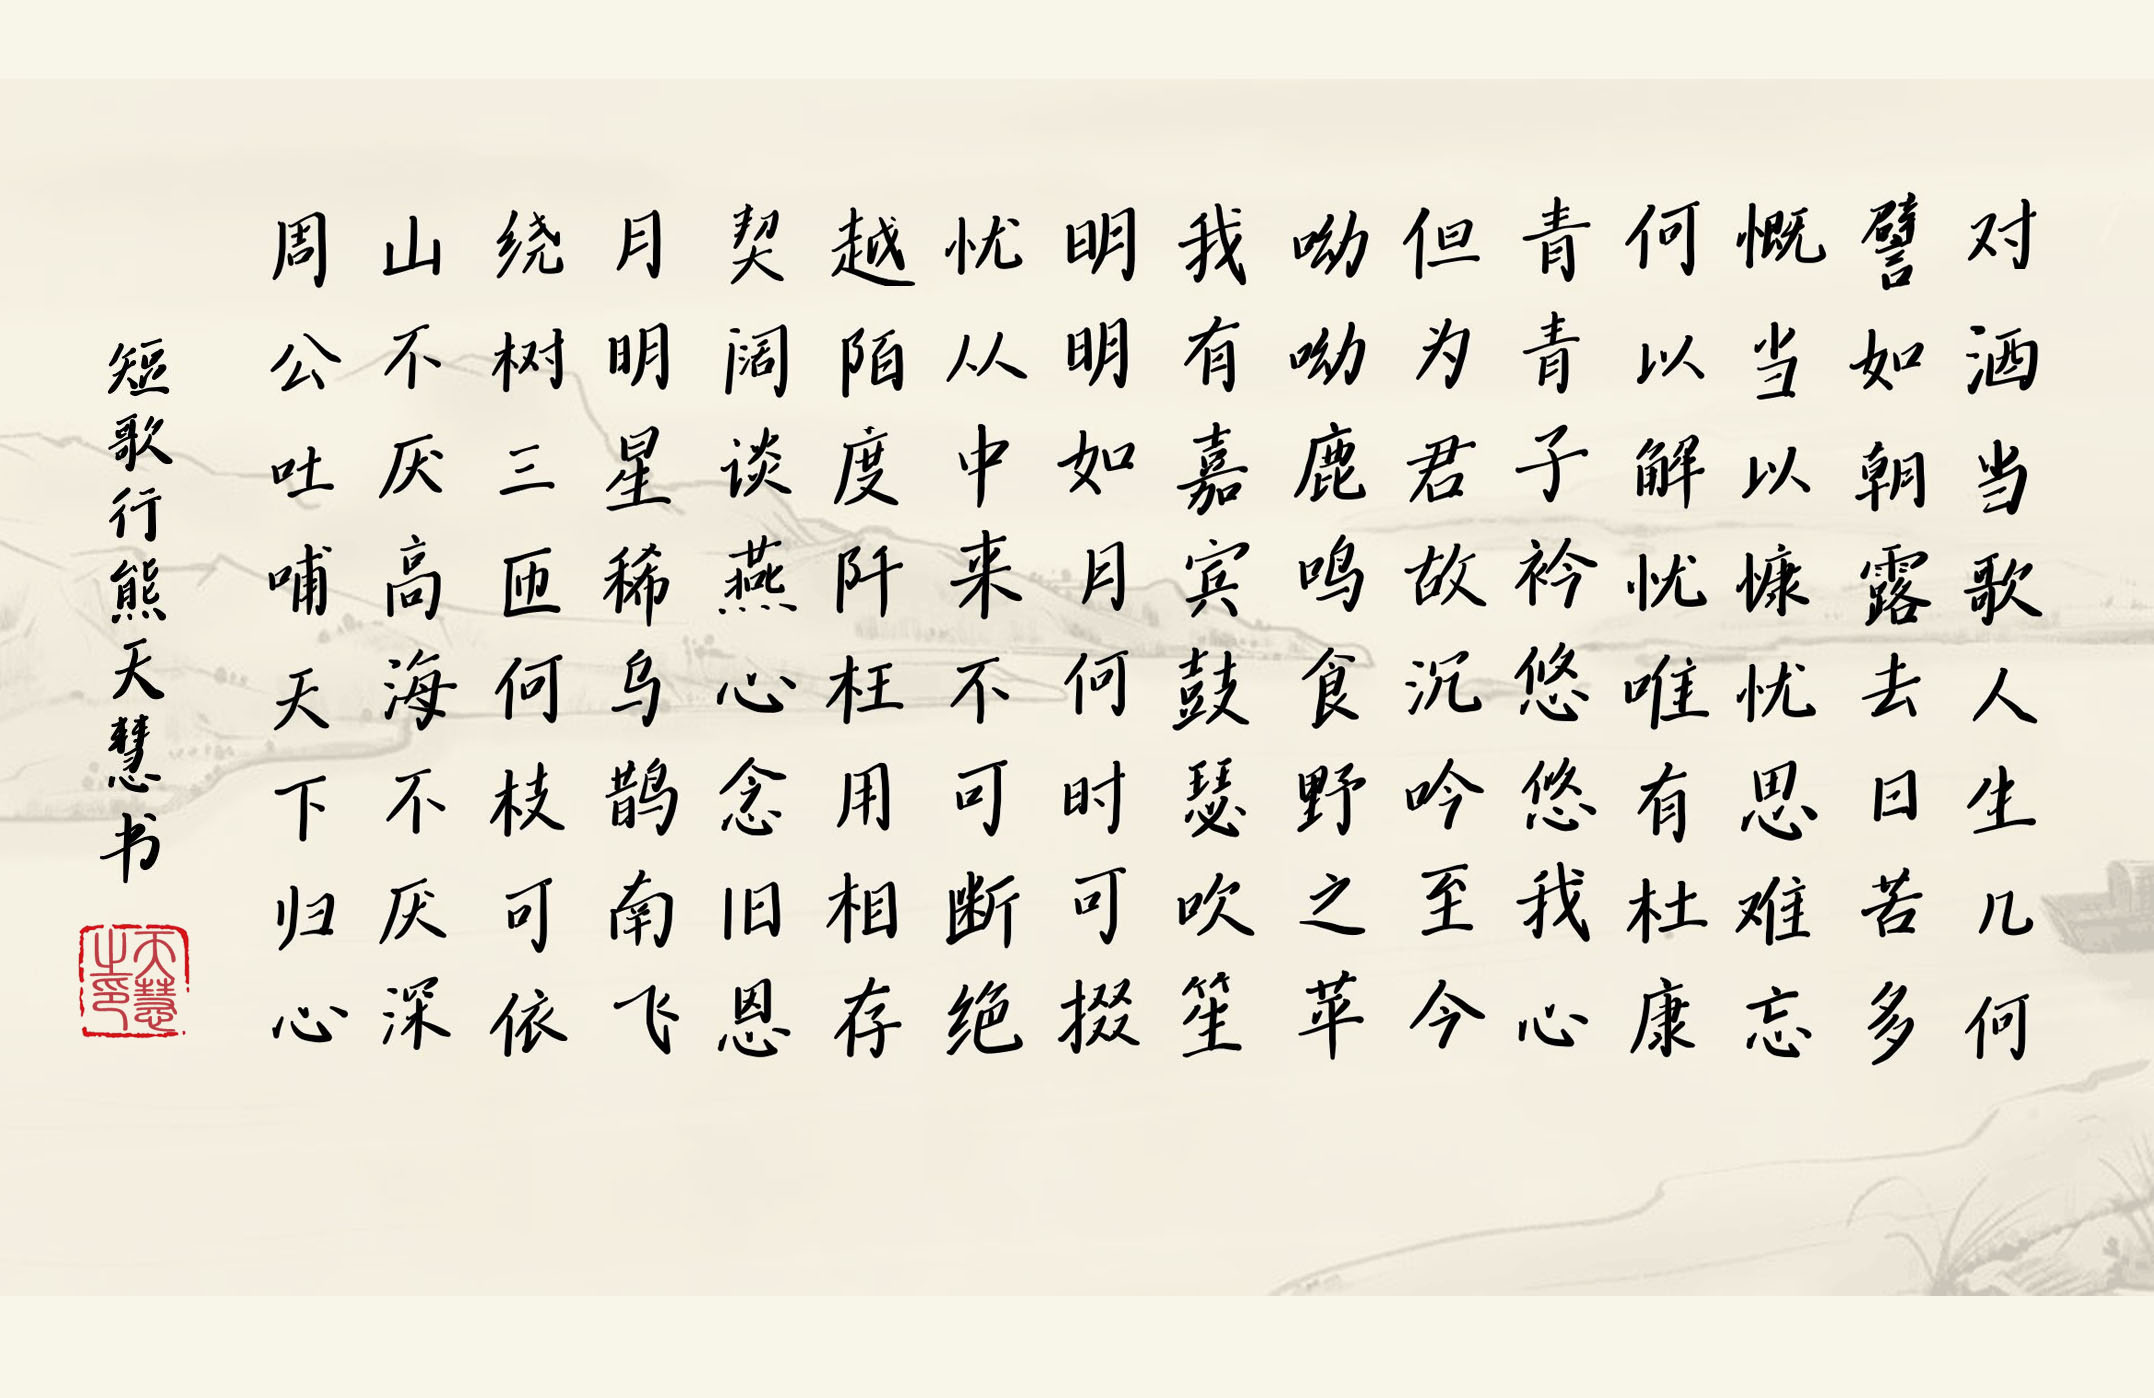 对酒当歌人生几何
譬如朝露去日苦多
慨当以慷忧思难忘
何以解忧唯有杜康
青青子衿悠悠我心
但为君故沉吟至今
呦呦鹿鸣食野之苹
我有嘉宾鼓瑟吹笙
明明如月何时可掇
忧从中来不可断绝
越陌度阡枉用相存
契阔谈燕心念旧恩
月明星稀乌鹊南飞
绕树三匝何枝可依
山不厌高海不厌深
周公吐哺天下归心
短歌行熊天慧书
天慧之印